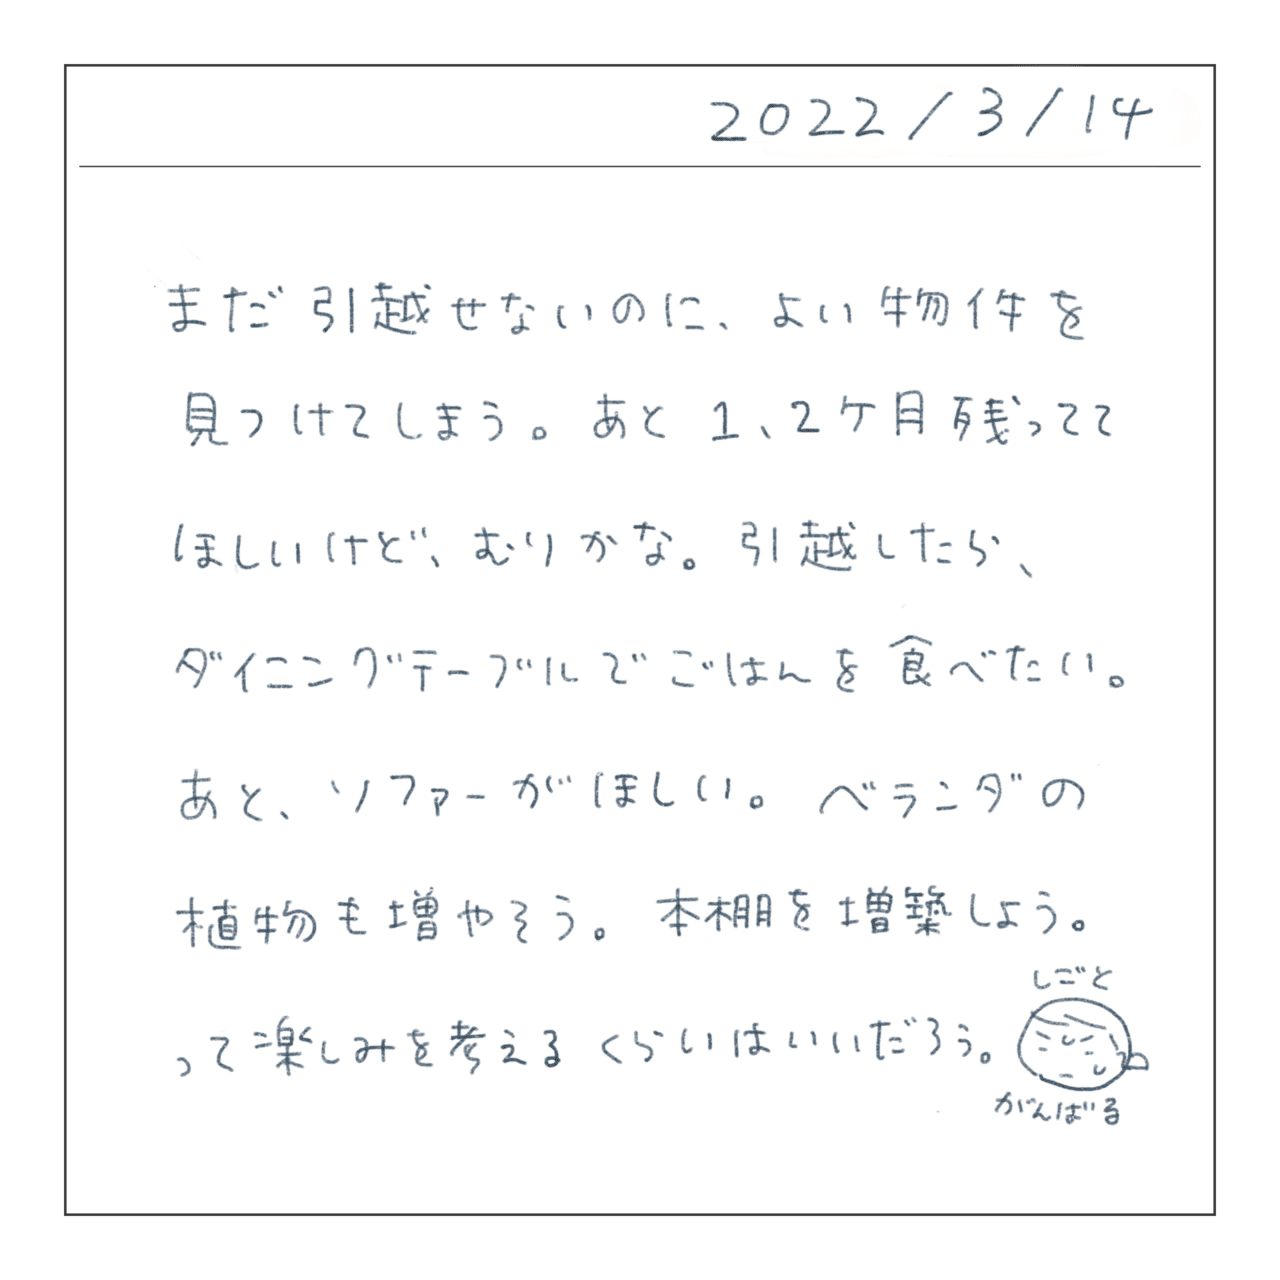 2022/3/14
まだ引越せないのに、よい物件を
見つけてしまう。あと1、2ケ月残ってて
ほしいけど、むりかな。引越したら、
ダイニングテーブルでごはんを食べたい。
あと、ソファーがほしい。ベランダの
植物も増やそう。本棚を増築しよう。
って楽しみを考えるくらいはいいだろう。
しごと
がんばる